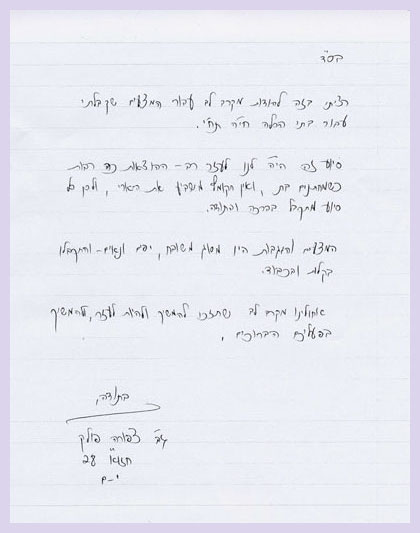 בס"ד
רציתי בזה להודות מקרב לב עבור המצעים שקבלתי
עבור בתי הכלה חי'ה תחי'.
סיוע זה היה לנו לעזר רב - ההוצאות כה רבות
כשמחתנים בת, ואין הקומץ משביע את הארי, ולכן כל
סיוע מתקבל בברכה ובתודה.
המצעים והמגבות היו מסוג משובח, יפים ונאים - והתקבלו
בקלות ובכבוד.
איחולינו מקרב לב שתזכו להמשך ולהיות לעזר, ולהמשיך
בפעליכם הברוכים.
בתודה,
גב' צפורה פולק
חזו"א 28
י-ם